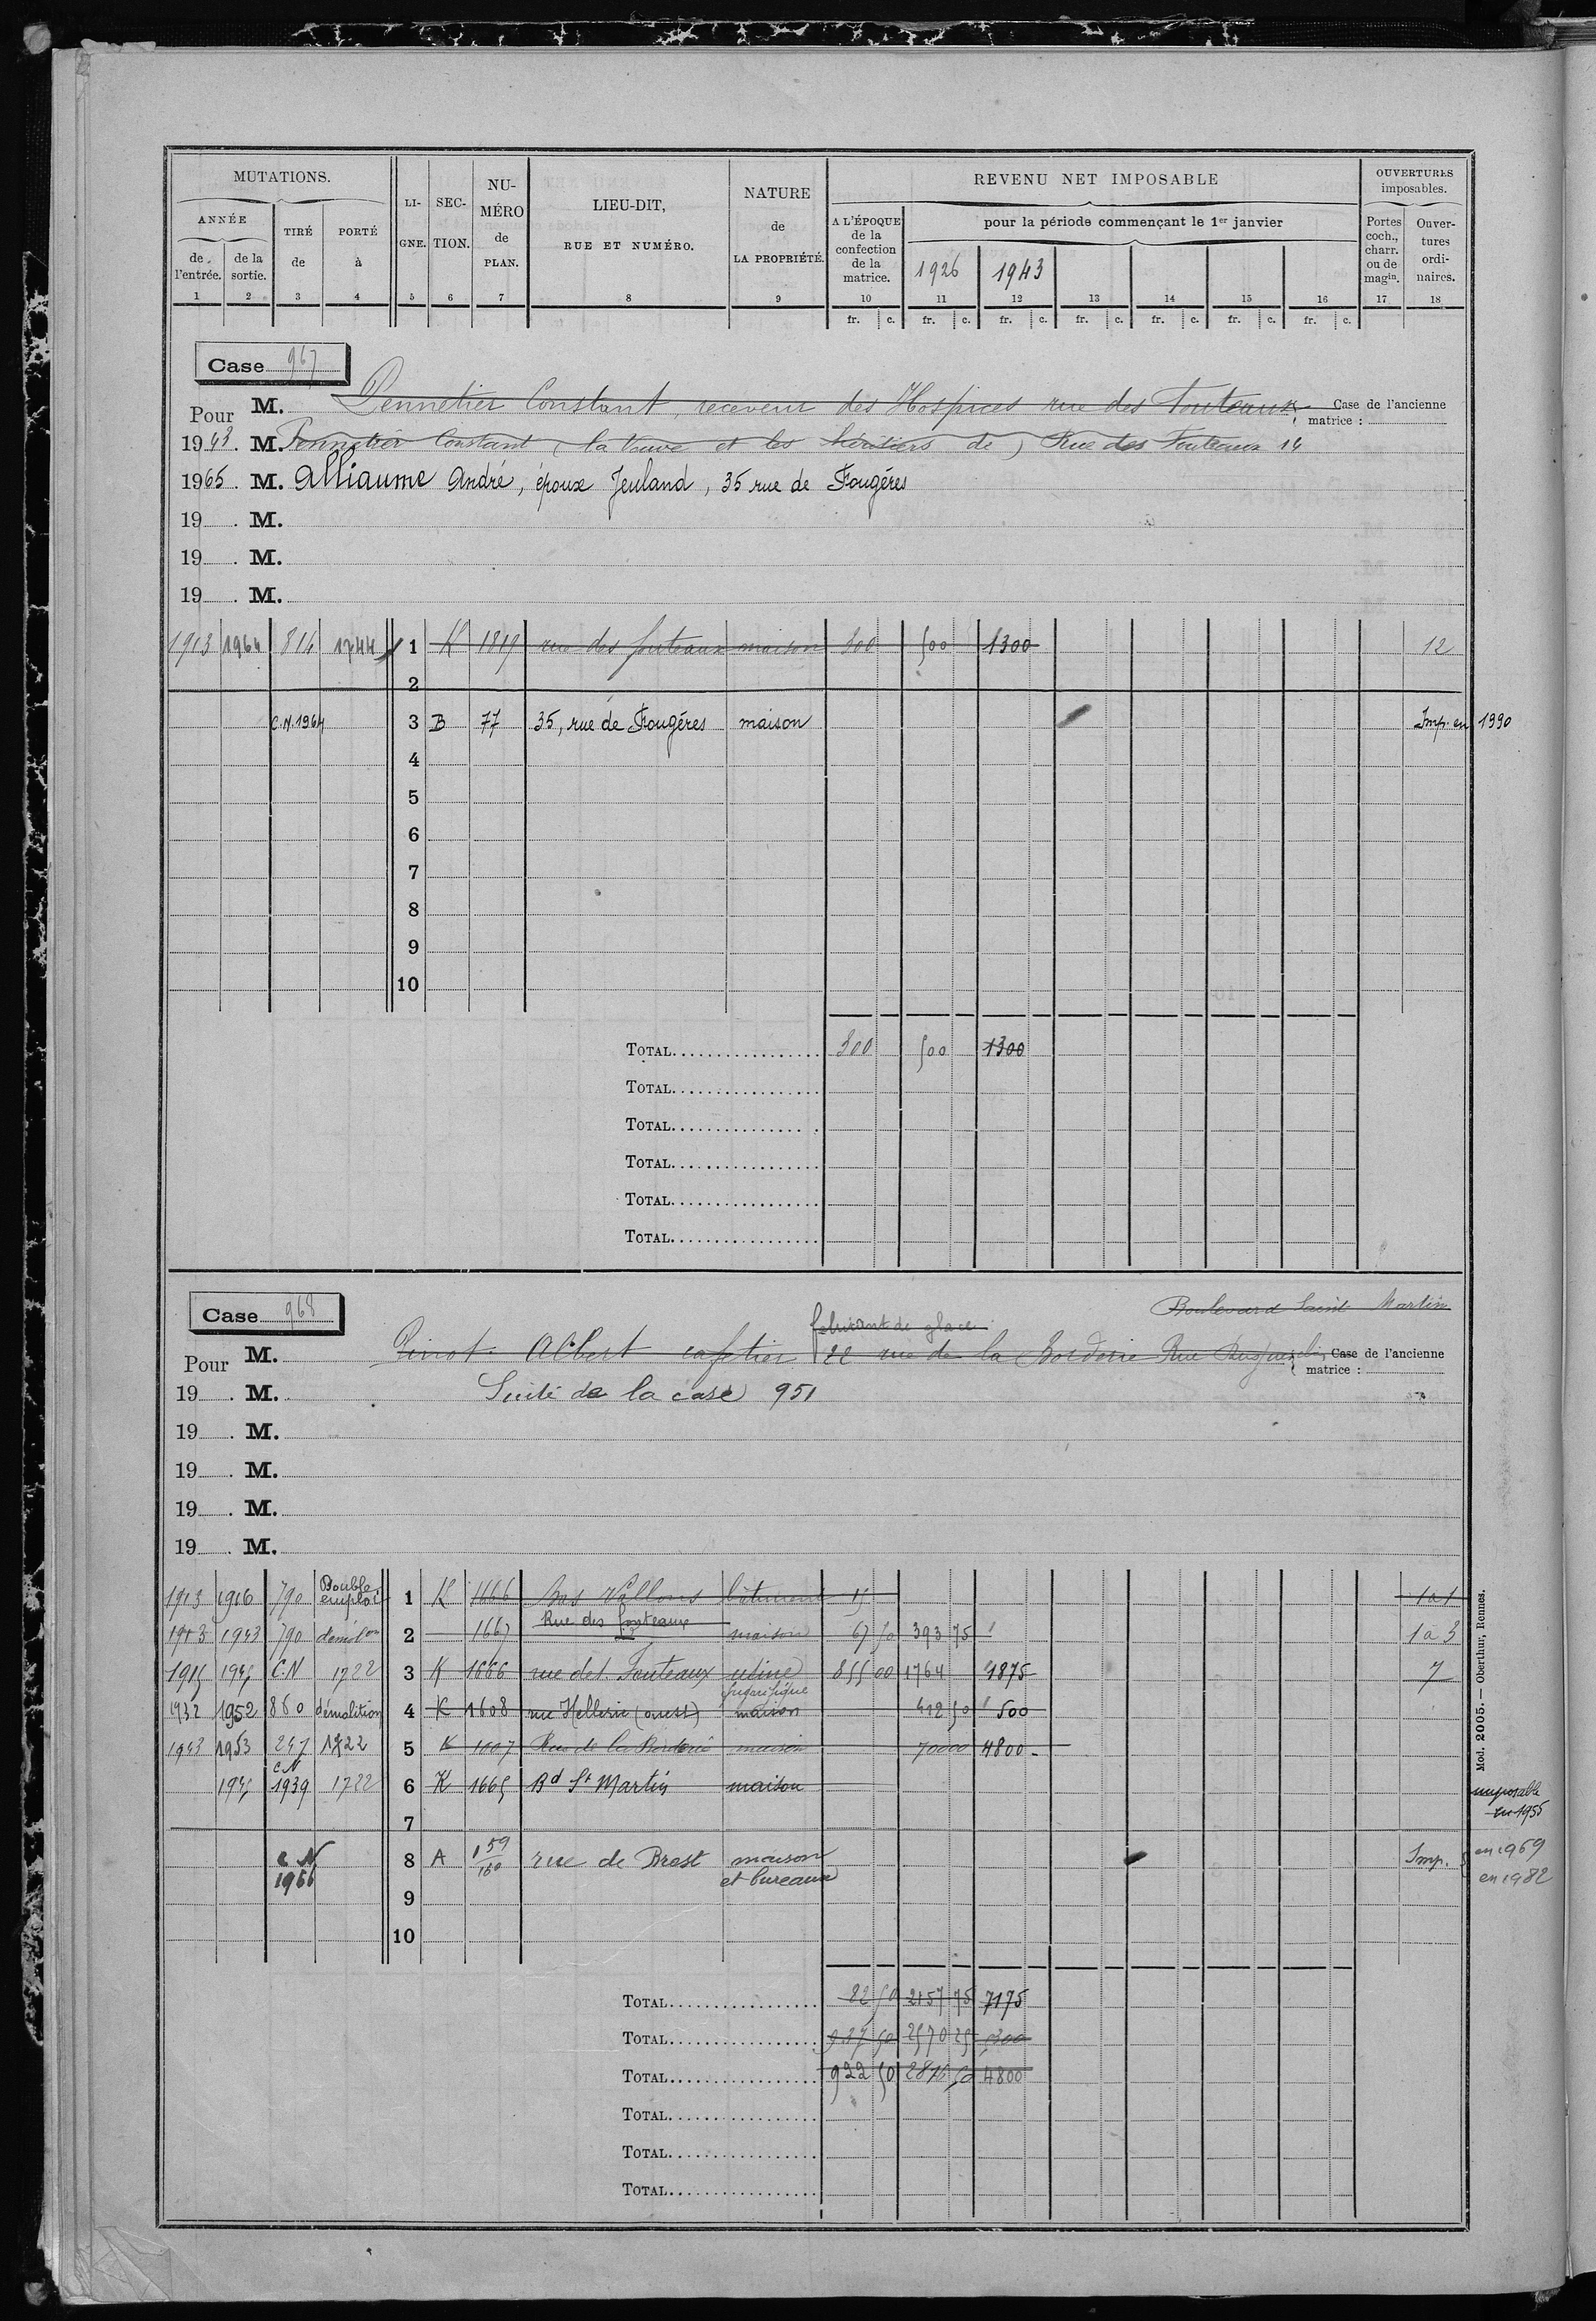 MUTATIONS.
ANNÉE
de l'entrée.
de la sortie.
TIRÉ de
PORTÉ à
LIGNE.
SECTION.
NUMÉRO de PLAN.
LIEU-DIT, RUE ET NUMÉRO.
NATURE de LA PROPRIÉTÉ.
REVENU NET IMPOSABLE
A L'ÉPOQUE de la confection de la matrice.
pour la période commençant le 1er janvier
1926 1943
OUVERTURES imposables.
Portes coch., charr. ou de magin.
Ouvertures ordinaires.
1 2 3 4 5 6 7 8 9 10 11 12 13 14 15 16 17 18
fr. c. fr. c. fr. c. fr. c. fr. c. fr. c. fr. c.
Case 967
Pour M. Pennetier Constant, receveur des Hospices rue des Fouteaux Case de l'ancienne matrice :
1943. M. Pennetier Constant (la Veuve et les héritiers de) Rue des Fouteaux 14
1965. M. Alliaume André, époux Jeuland, 35 rue de Fougéres
19 . M.
19 . M.
19 . M.
1913 1964 814 1744 1 K 1819 rue des fouteaux maison 300 500 1300 12
2
C.N. 1964 3 B 77 35, rue de Fougéres maison Imp. en 1990
4
5
6
7
8
9
10
TOTAL 300 500 1300
TOTAL
TOTAL
TOTAL
TOTAL
TOTAL
Case 968
Boulevard Saint Martin
fabricant de glace
Pour M. Pinot Albert cafetier 22 rue de la Borderie Rue Duguesclin Case de l'ancienne matrice :
19 . M. Suite de la case 951
19 . M.
19 . M.
19 . M.
19 . M.
1913 1916 790 Double emploi 1 K 1666 Bas Vallons bâtiment 15 1à1
1913 1943 790 démolon 2 1667 Rue des fouteaux maison 67 50 393 75 1à3
1915 1945 C.N 1722 3 K 1666 rue des Fouteaux usine frigorifique 855 00 1764 1875 7
1932 1952 860 démolition 4 K 1608 rue Hellerie (ouest) maison 412 50 500
1943 1953 247 1722 5 K 1007 Rue de la Borderie maison 700 00 4800
1945 C N 1939 1722 6 K 1665 Bd St Martin maison
imposable en 1955
7
C N 1966 8 A 159 160 rue de Brest maison et bureaux Imp. en 1969 en 1982
9
10
TOTAL 82 50 2157 75 7175
TOTAL 937 50 2570 25 5300
TOTAL 922 50 2876 50 4800
TOTAL
TOTAL
TOTAL
Mod. 2005. — Oberthur, Rennes.